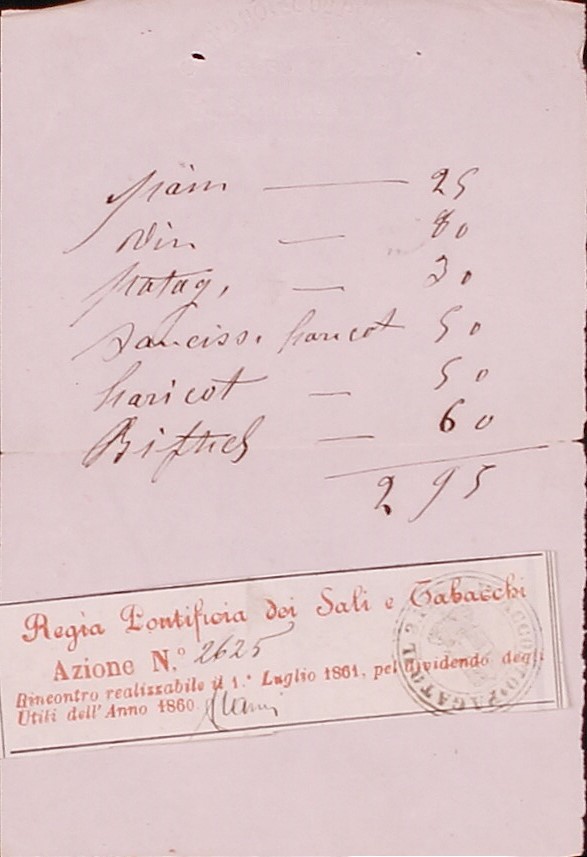 pain — 25
vin — 80
potag, — 30
Sauciss. haricot 50
haricot — 50
Biftecks — 60
295
Regia Pontificia dei Sali e Tabacchi
Azione N.° 2625
Rincontro realizzabile il 1.° Luglio 1861, pel dividendo degli
Utili dell'Anno 1860